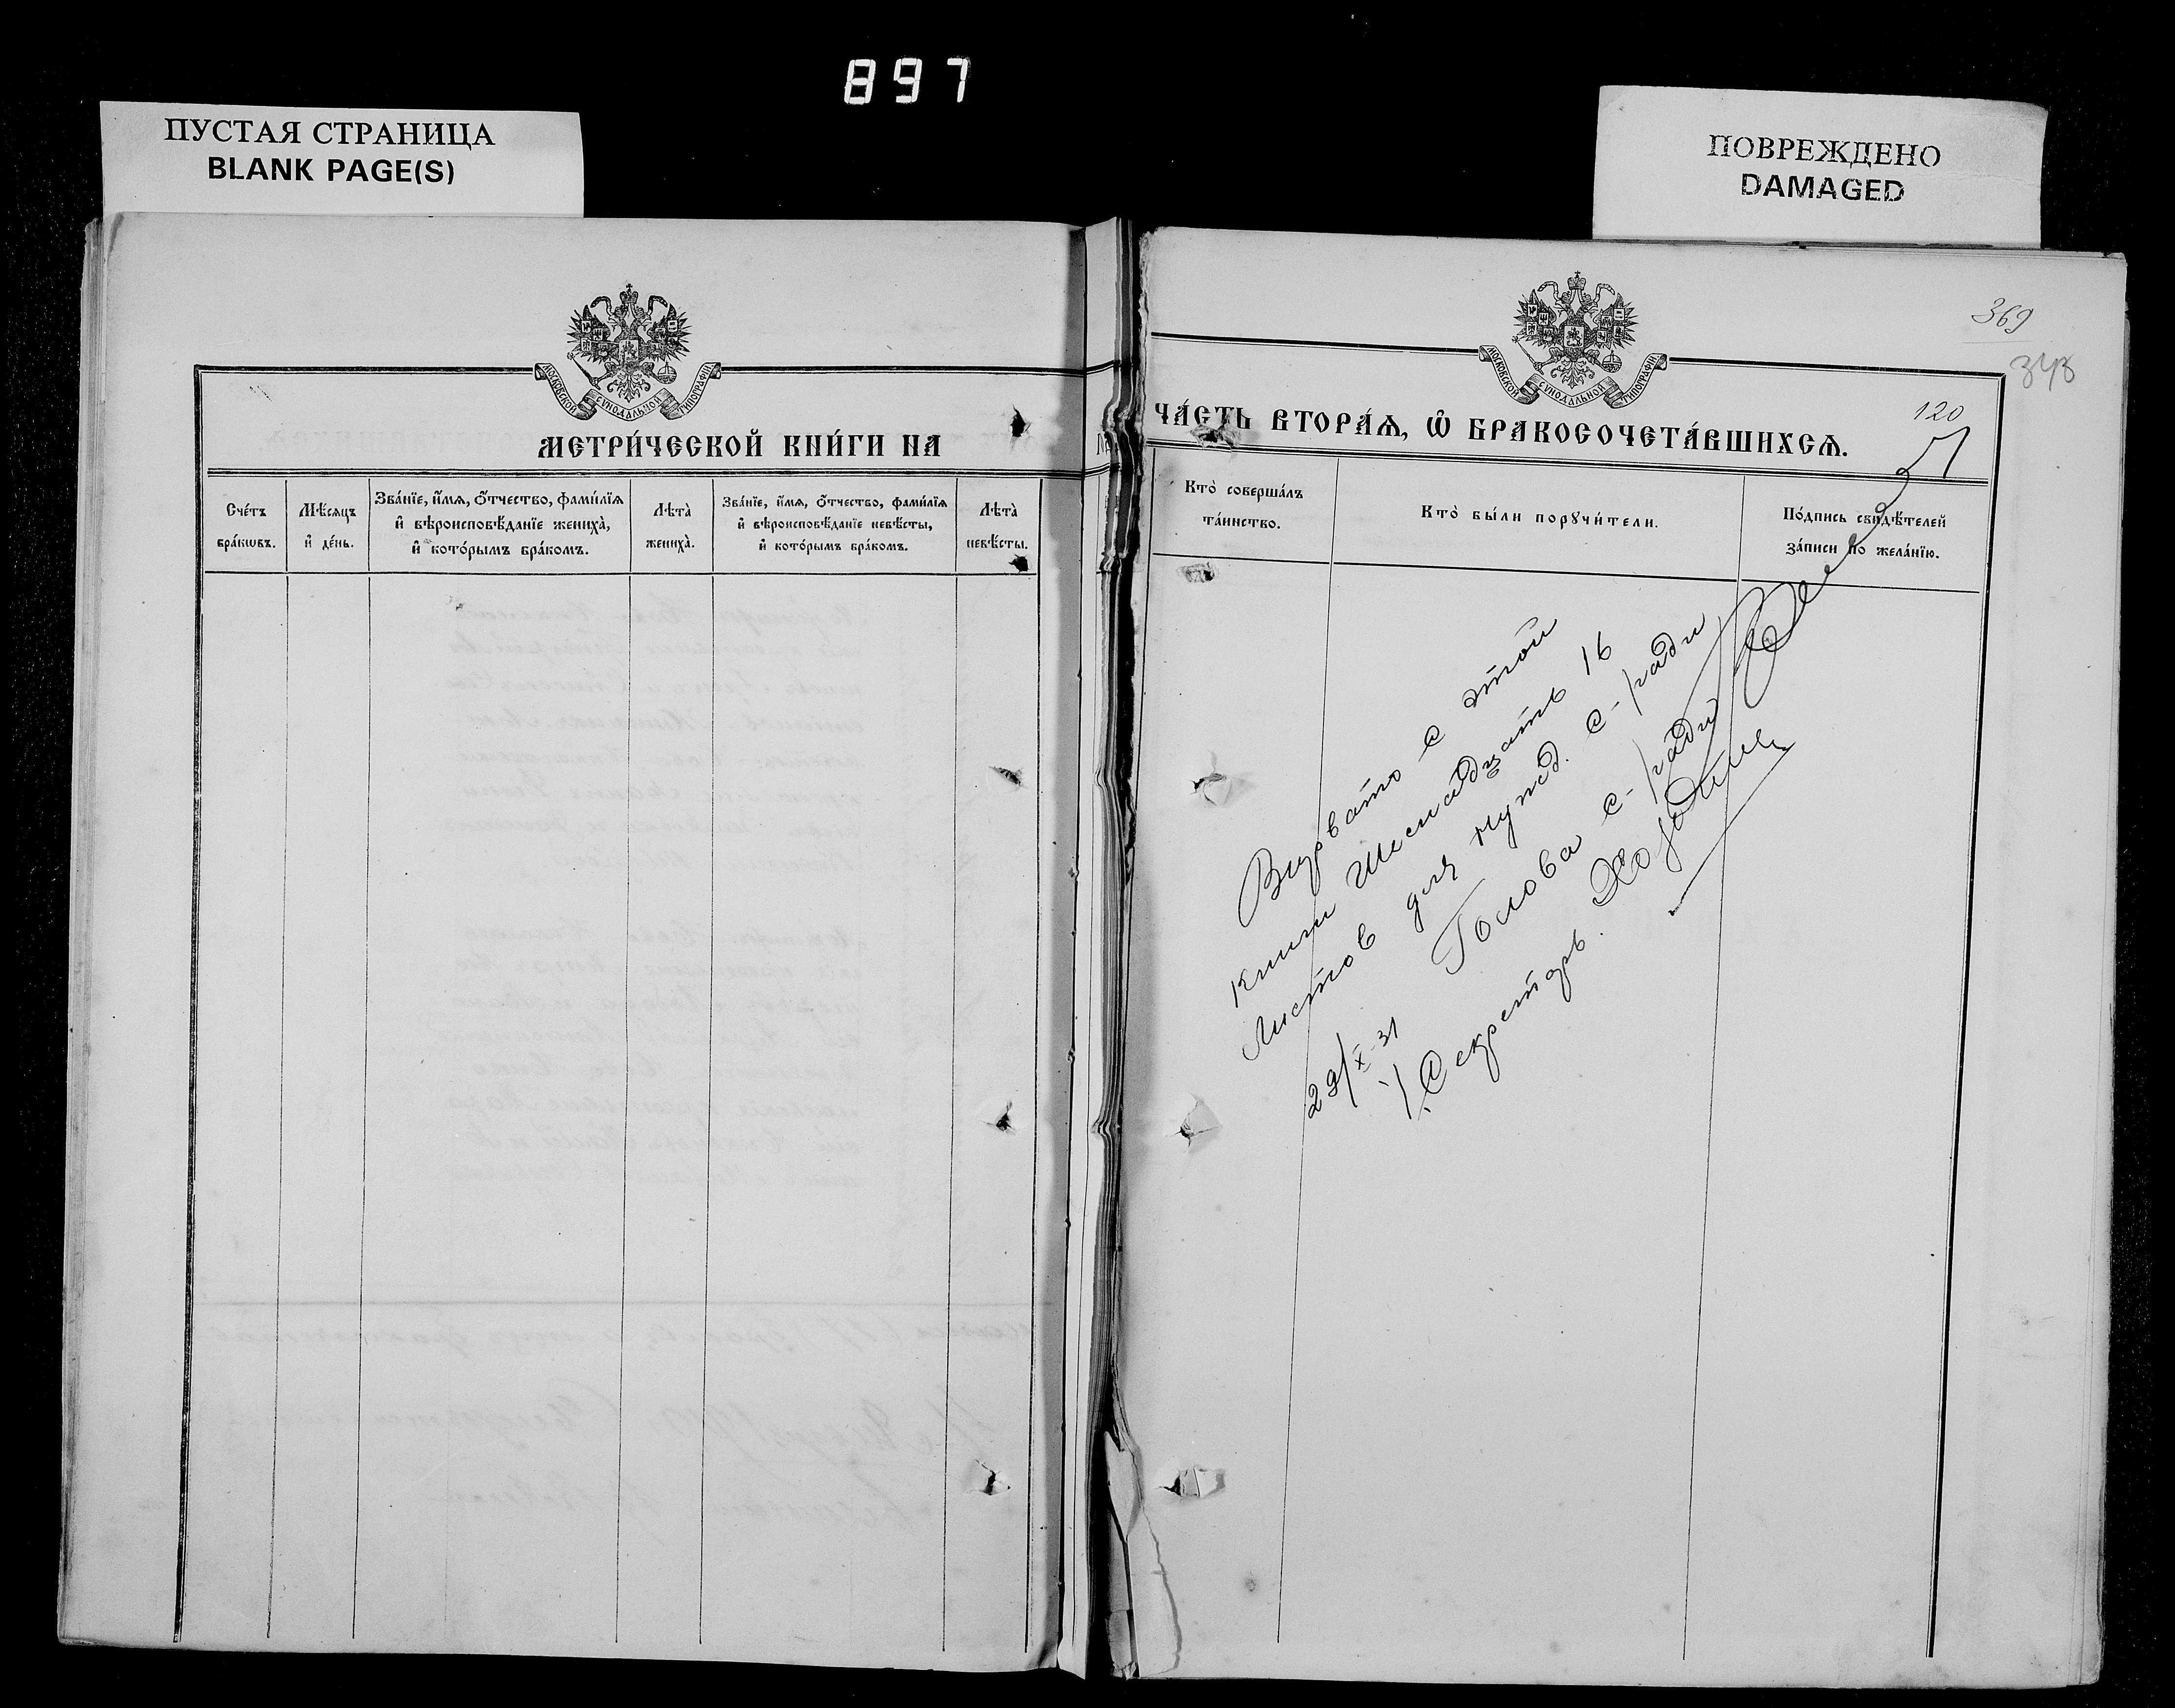 897
ПУСТАЯ СТРАНИЦА
BLANK PAGE(S)
ПОВРЕЖДЕНО
DAMAGED
МОСКОВСКОЙ СѴНОДАЛЬНОЙ ТИПОГРАФІИ
МЕТРИ́ЧЕСКОЙ КНИ́ГИ НА
Сче́тъ бра́кѡвъ.
Мѣ́сяцъ и҆ де́нь.
Зва́нїе, и҆́мя, ѻ҆́тчество, фами́лїя
и҆ вѣроисповѣ́данїе жениха̀,
и҆ кото́рымъ бра́комъ.
Лѣта̀ жениха̀.
Зва́нїе, и҆́мя, ѻ҆́тчество, фами́лїя
и҆ вѣроисповѣ́данїе невѣ́сты,
и҆ кото́рымъ бра́комъ.
Лѣта̀ невѣ́сты.
369
348
120
МОСКОВСКОЙ СѴНОДАЛЬНОЙ ТИПОГРАФІИ
ЧА́СТЬ ВТОРА́Ѧ, Ѽ БРАКОСОЧЕТА́ВШИХСѦ.
Кто̀ соверша́лъ
та́инство.
Кто̀ бы́ли порꙋчи́тели.
По́дпись свидѣ́телей
за́писи по жела́нїю.
Вирвато с этой
книги шеснадцать 16
Листов для нужд. с-/ради
Голова с-/ради
29/X-31
Секретарь.